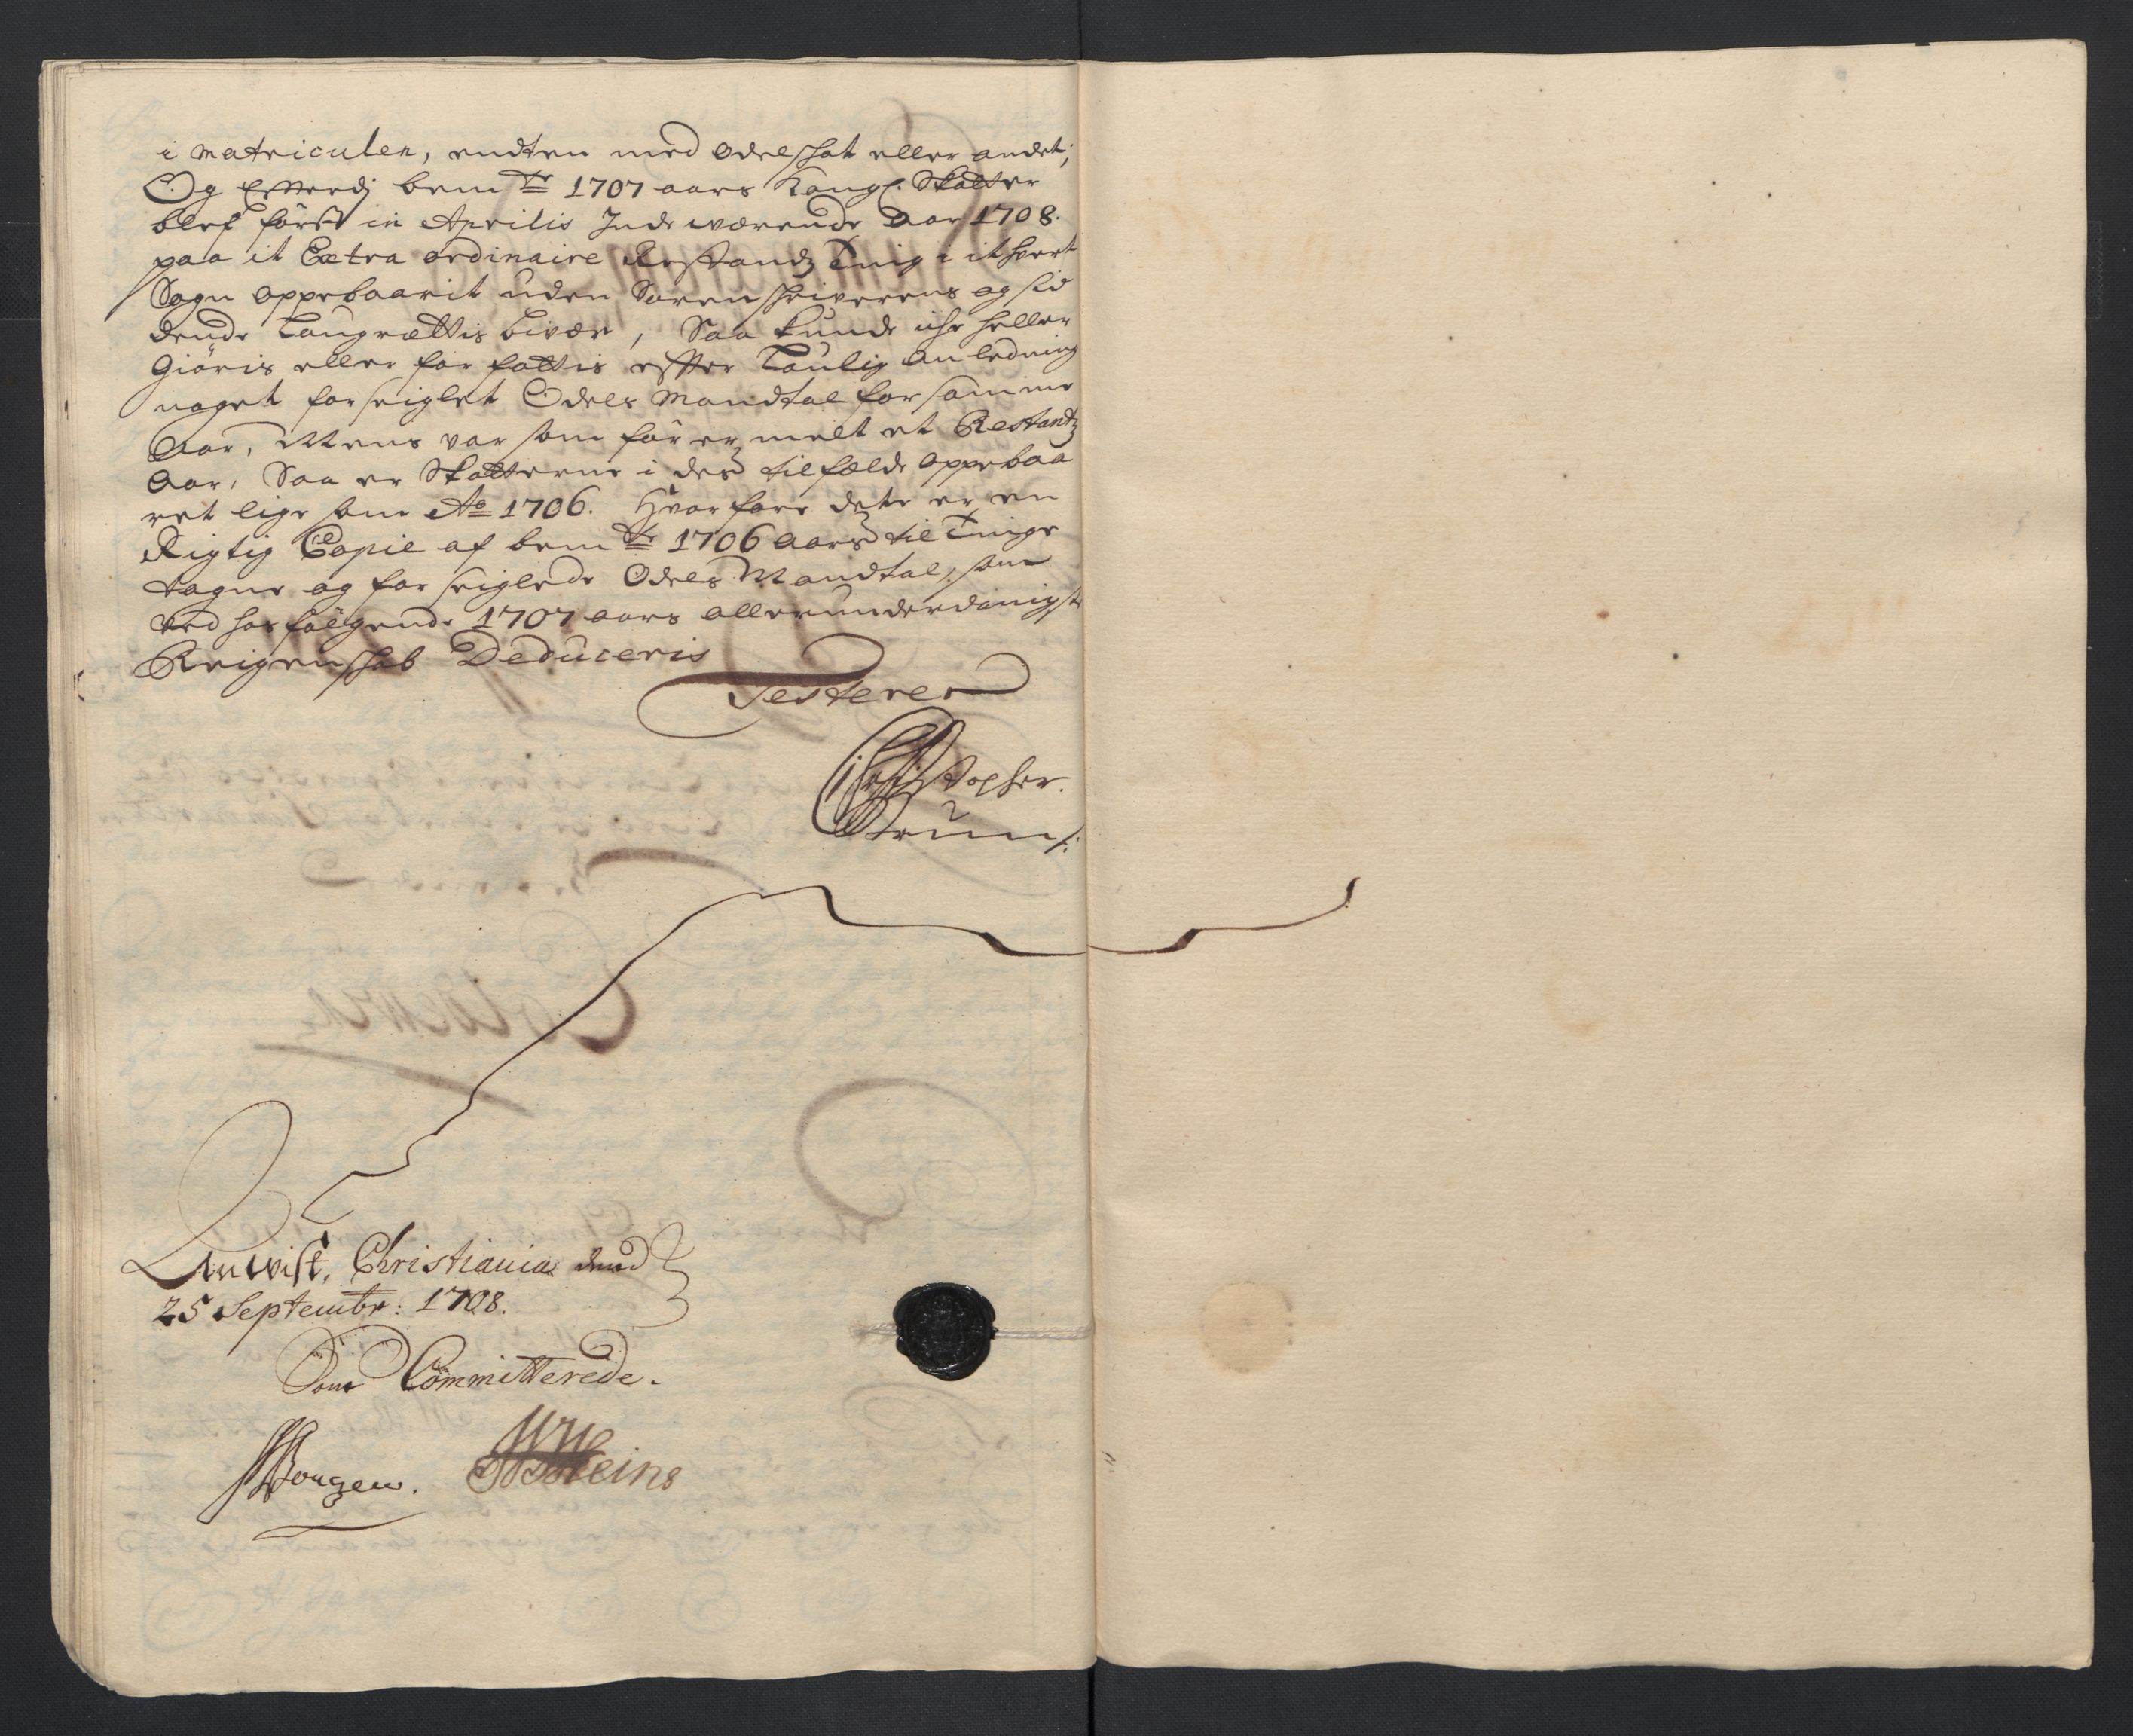 i Matriculen, endten med Odelschat eller andet;
Og Efterdj bem.te 1707 aars Kongl. Skatter
blef först in Aprilis Inde wærende Aar 1708.
paa it Extra ordinaire Restandz Ting i it hvert
Sogn oppebaarit uden Sorenschriverens og sid
dende Laugrættis bivær, Saa kunde iche heller
Giöris eller for fattis efter Laulig Anledning
noget forseiglet Odels Mandtal for samme
Aar, Mens var som för er melt et Restantz
Aar, Saa er Skatterne i des tilfælde oppebaa
ret lige som Ao 1706. Hvorfore dete er en
Rigtig Copie af bem.te 1706 Aars til Tinge
tagne og forseiglede Odels Mandtal, som
ved hosfölgende 1707 aars allerunderdanigste
Reigenschab Deduceris
Testerer
Christopher
Brun
Anvist, Christiania dend
25 Septembr: 1708.
Som Committerede.
Borgen.